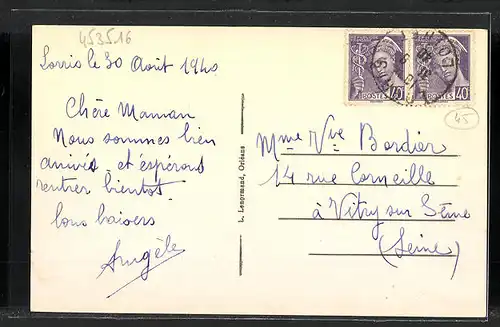 453516
Lorris le 30 Août 1940
Chère Maman
Nous sommes bien
arrivés et espérons
rentrer bientot.
bons baisers
Angèle
L. Lenormand, Orléans
POSTES 40
POSTES 40
45
Mme Vve Bordier
14 rue Corneille
à Vitry sur Seine
(Seine)